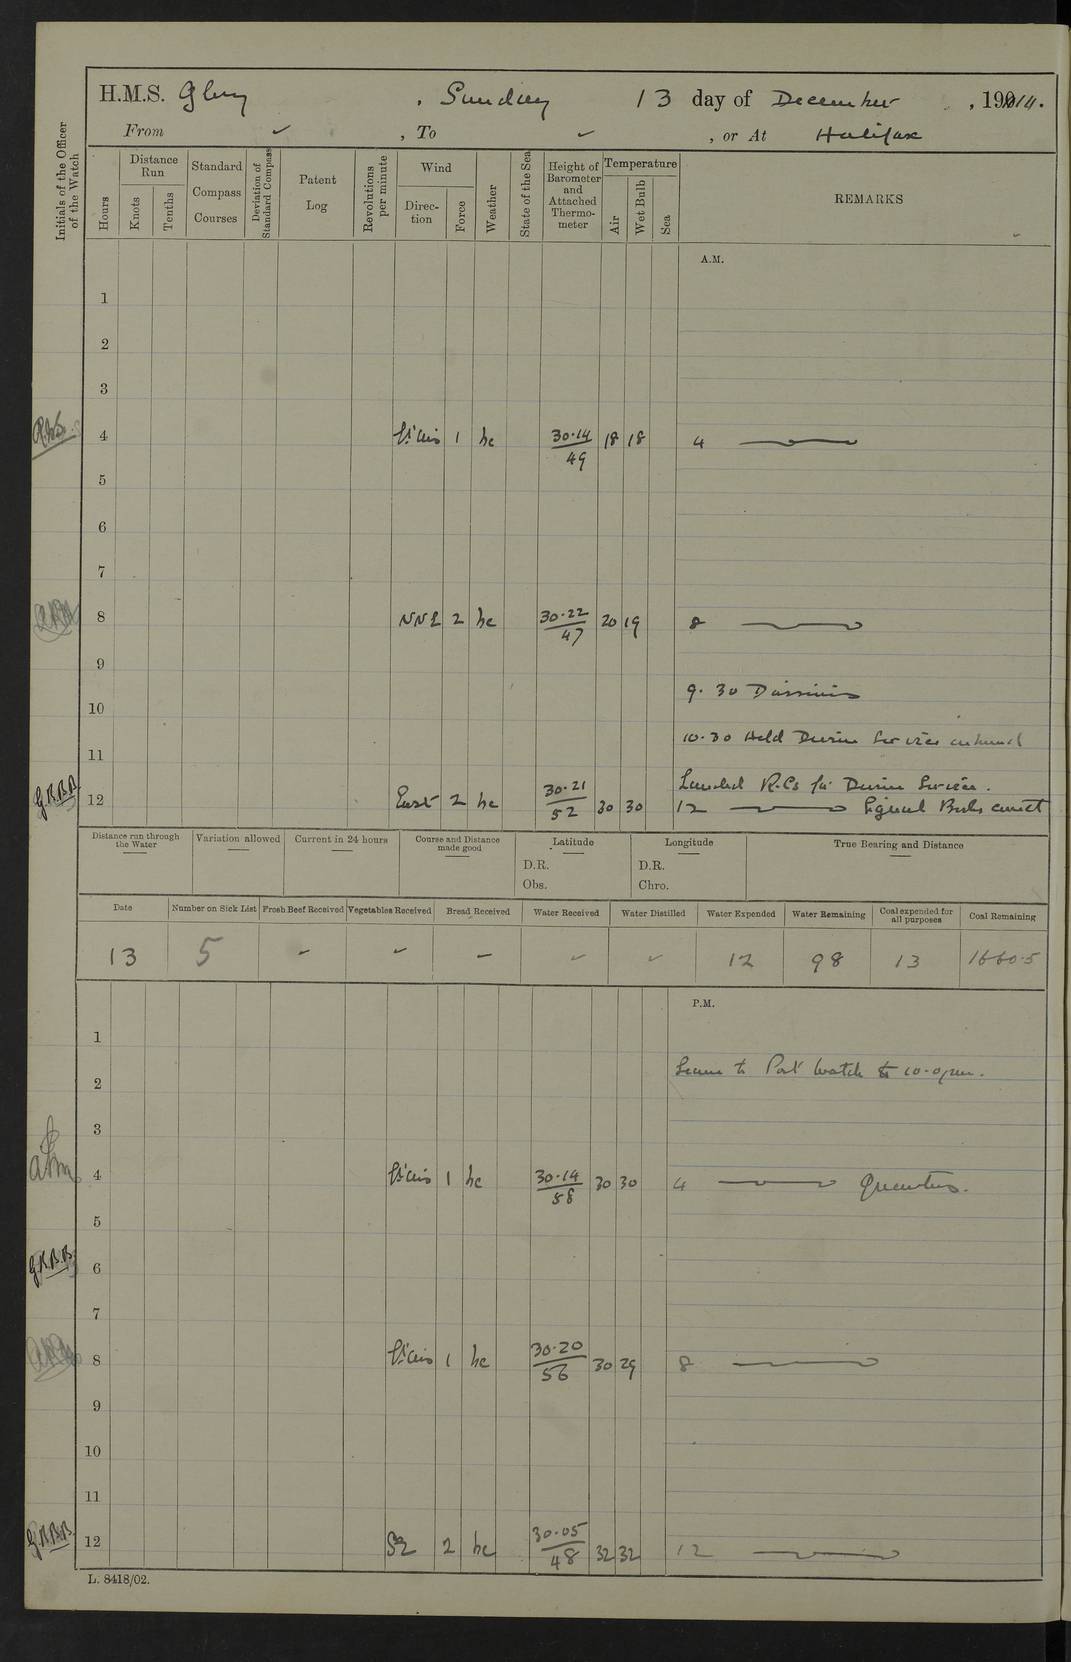 H.M.S. Glory, Sunday 13 day of December, 1914.
From ✓, To ✓, or At Halifax
Initials of the Officer of the Watch
Hours
Distance Run
Knots
Tenths
Standard Compass Courses
Deviation of Standard Compass
Patent Log
Revolutions per minute
Wind
Direction
Force
Weather
State of the Sea
Height of Barometer and Attached Thermometer
Temperature
Air
Wet Bulb
Sea
REMARKS
A.M.
1
2
3
4 Vl'airs 1 bc 30.14 / 49 18 18 4
5
6
7
8 NNE 2 bc 30.22 / 47 20 19 8
9
9.30 Divisions
10
10.30 Held Divine Services onboard
11
Landed R.Cs for Divine Service.
G.B.B.B. 12 East 2 bc 30.21 / 52 30 30 12 Signal Books correct
Distance run through the Water
Variation allowed
Current in 24 hours
Course and Distance made good
Latitude
D.R.
Obs.
Longitude
D.R.
Chro.
True Bearing and Distance
Date Number on Sick List Fresh Beef Received Vegetables Received Bread Received Water Received Water Distilled Water Expended Water Remaining Coal expended for all purposes Coal Remaining
13 5 - - - ✓ ✓ 12 98 13 1660.5
P.M.
1
Leave to Port Watch to 10.0 pm.
2
3
4 Vl'airs 1 bc 30.14 / 58 30 30 4 Quarters.
5
G.B.B.B.
6
7
8 Vl'airs 1 bc 30.20 / 56 30 29 8
9
10
11
G.B.B.B. 12 SE 2 bc 30.05 / 48 32 32 12
L. 8418/02.